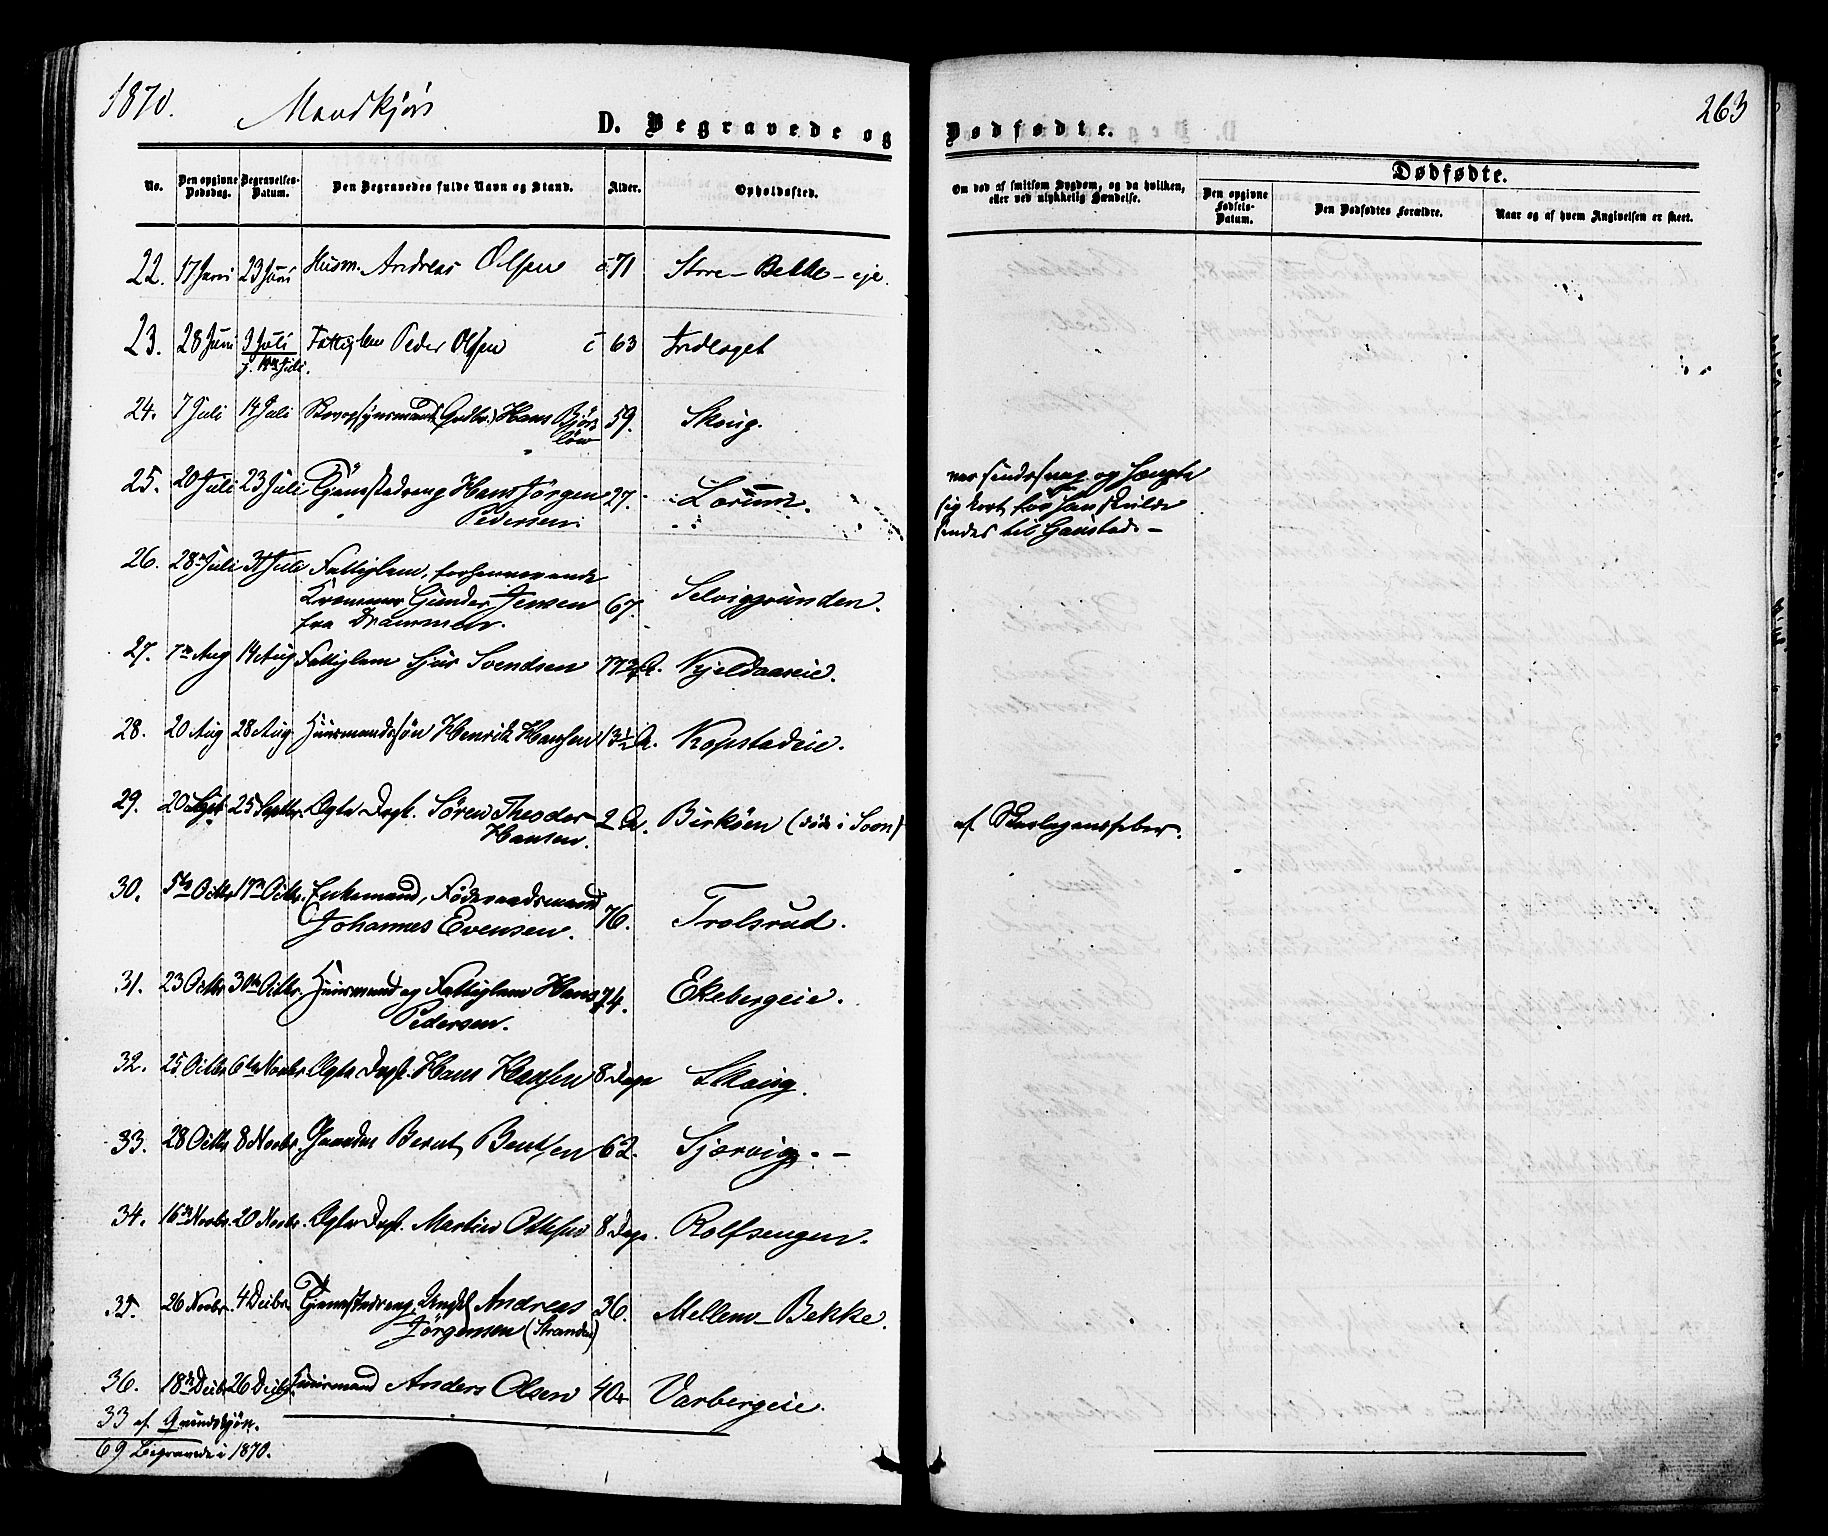 1870. Mandkjøn 263
D. Begravede og Dødfødte.
No. Den opgivne Dødsdag. Begravelses-Datum. Den Begravedes fulde Navn og Stand. Alder. Opholdssted. Om død af smitsom Sygdom, og da hvilken, eller ved ulykkelig Hændelse. Dødfødte. Den opgivne Fødsels-Datum. Den Dødfødtes Forældre. Naar og af hvem Angivelsen er skeet.
22. 17 Juni 23 Juni Husm. Andreas Olsen 71 Store-Bekke-eje.
23. 28 Juni 3 Juli Fattiglem Peder Olsen 63 Indlaget
j. 10de Juli.
24. 7 Juli 14 Juli Hans Bjørn 59. Skoug.
25. 20 Juli 23 Juli Tjenestedreng Hans Jørgen 27. Lorum.
Pedersen
var sindssvag og hængte
sig kort før han skulde
sendes til Gaustad.-
26. 28 Juli 31 Juli Fattiglem, forhenværende
Kræmmer Gunder Jensen 67. Selviggrunden.
fra Drammen.
27. 7de Aug 14 Aug Fattiglem Sjur Svendsen 77 A. Kjeldaaseie.
28. 20 Aug 28 Aug. Huusmandssøn Henrik Hansen 13½ A. Kopstadeie.
29. 20 Sept 25 Septbr. Ægte Dgt. Søren Theodor 2 A. Birkøen (død i Soon) af Skarlagensfeber.
Hansen.
30. 5te Octbr 17de Octbr. Enkemand, Føderaadsmand
Johannes Evensen. 76. Trolsrud.
31. 23 Octbr 30te Octbr. Huusmand og Fattiglem Hans 74. Ekebergeie.
Pedersen.
32. 25 Octbr 6te Novbr Ægte Dgt. Hans Hansen 8 Dage Skoug.
33. 28 Octbr 8 Novbr. Gaardm. Bernt Bentsen 62. Sjærvig.-
34. 16de Novbr. 20 Novbr. Ægte Dgt. Martin Ottesen 8 Dage. Rolfsengen.
35. 26 Novbr. 4 Decbr. Tjenestedreng, Ungkl Andreas 36. Mellem-Bekke.
Jørgensen (Stranden)
36. 18de Decbr 26 Decbr. Huusmand Anders Olsen 40 Varbergeie.
33 af Qvindekjøn.
69 Begravede i 1870.